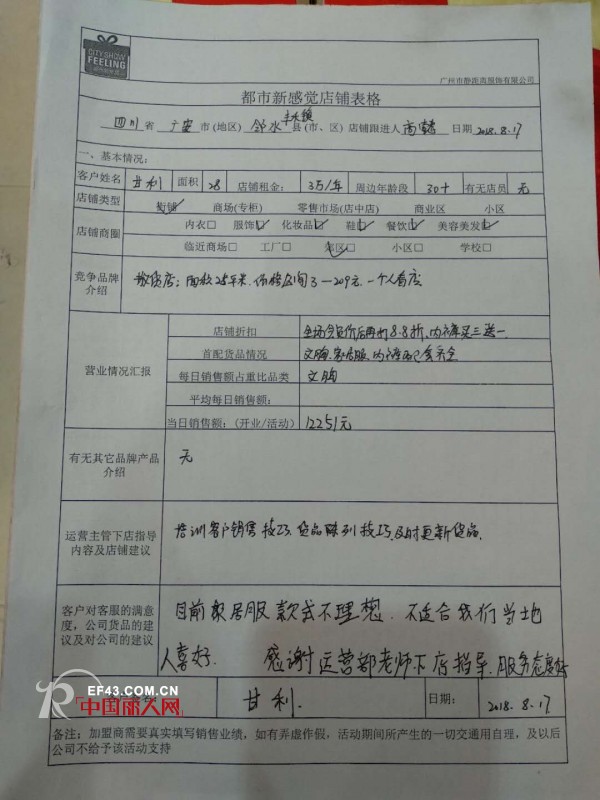 CITYSHOW
FEELING
广州市静距离服饰有限公司
都市新感觉店铺表格
四川省 广安市(地区) 邻水县(市、区) 店铺跟进人 日期 2018.8.17
一、基本情况:
客户姓名 甘利 面积 28 店铺租金: 3万/年 周边年龄段 30+ 有无店员 无
店铺类型 街铺 商场(专柜) 零售市场(店中店) 商业区 小区
店铺商圈 内衣□ 服饰☑ 化妆品☑ 鞋☑ 餐饮☑ 美容美发☑
临近商场□ 工厂□ 小区□ 学校□
竞争品牌
介绍
面积25平米.价格区间3—209元.一个人看店
营业情况汇报
店铺折扣 全场会员价后再打8.8折.内裤买三送一.
首配货品情况 文胸.家居服.内裤
每日销售额占重比品类 文胸
平均每日销售额:
当日销售额:(开业/活动) 12251元
有无其它品牌产品
介绍
无
运营主管下店指导
内容及店铺建议
培训客户销售技巧.货品陈列技巧.及时更新货品.
客户对客服的满意
度,公司货品的建
议及对公司的建议
目前家居服款式不理想.不适合我们当地
人喜好. 感谢运营部老师下店指导.服务态度好
甘利. 日期: 2018.8.17
EF43.COM.CN
中国丽人网
备注:加盟商需要真实填写销售业绩,如有弄虚作假,活动期间所产生的一切交通用自理,及以后
公司不给予该活动支持